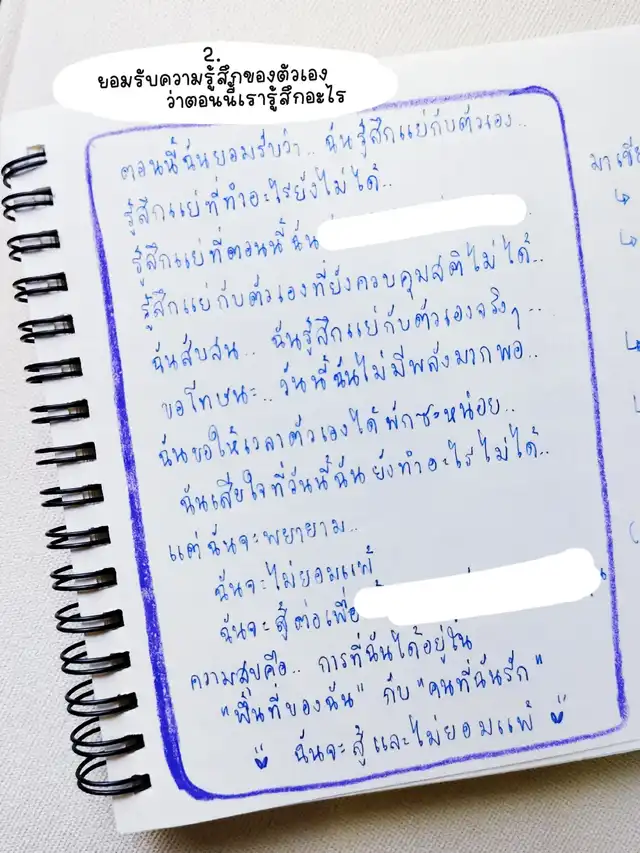 2.
ยอมรับความรู้สึกของตัวเอง
ว่าตอนนี้เรารู้สึกอะไร
ตอนนี้ฉันยอมรับว่า.. ฉันรู้สึกแย่กับตัวเอง..
รู้สึกแย่ที่ทำอะไรยังไม่ได้..
รู้สึกแย่ที่ตอนนี้ฉัน
รู้สึกแย่กับตัวเองที่ยังควบคุมสติไม่ได้..
ฉันสับสน.. ฉันรู้สึกแย่กับตัวเองจริงๆ..
ขอโทษนะ.. วันนี้ฉันไม่มีพลังมากพอ..
ฉันขอให้เวลาตัวเองได้พักซะหน่อย..
ฉันเสียใจที่วันนี้ฉันยังทำอะไรไม่ได้..
แต่ฉันจะพยายาม..
ฉันจะไม่ยอมแพ้
ฉันจะสู้ต่อเพื่อ
ความสุขคือ.. การที่ฉันได้อยู่ใน
"พื้นที่ของฉัน" กับ "คนที่ฉันรัก"
ฉันจะสู้และไม่ยอมแพ้